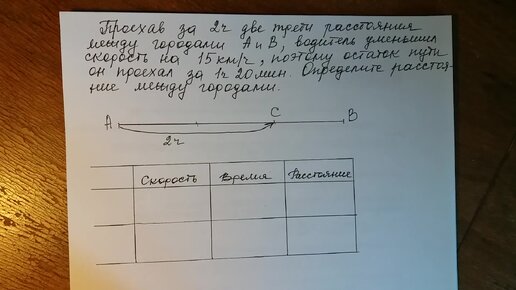 Проехав за 2ч две трети расстояния
между городами А и В, водитель уменьшил
скорость на 15 км/ч, поэтому остаток пути
он проехал за 1ч 20мин. Определите расстоя-
ние между городами.
А С В
2ч
Скорость Время Расстояние